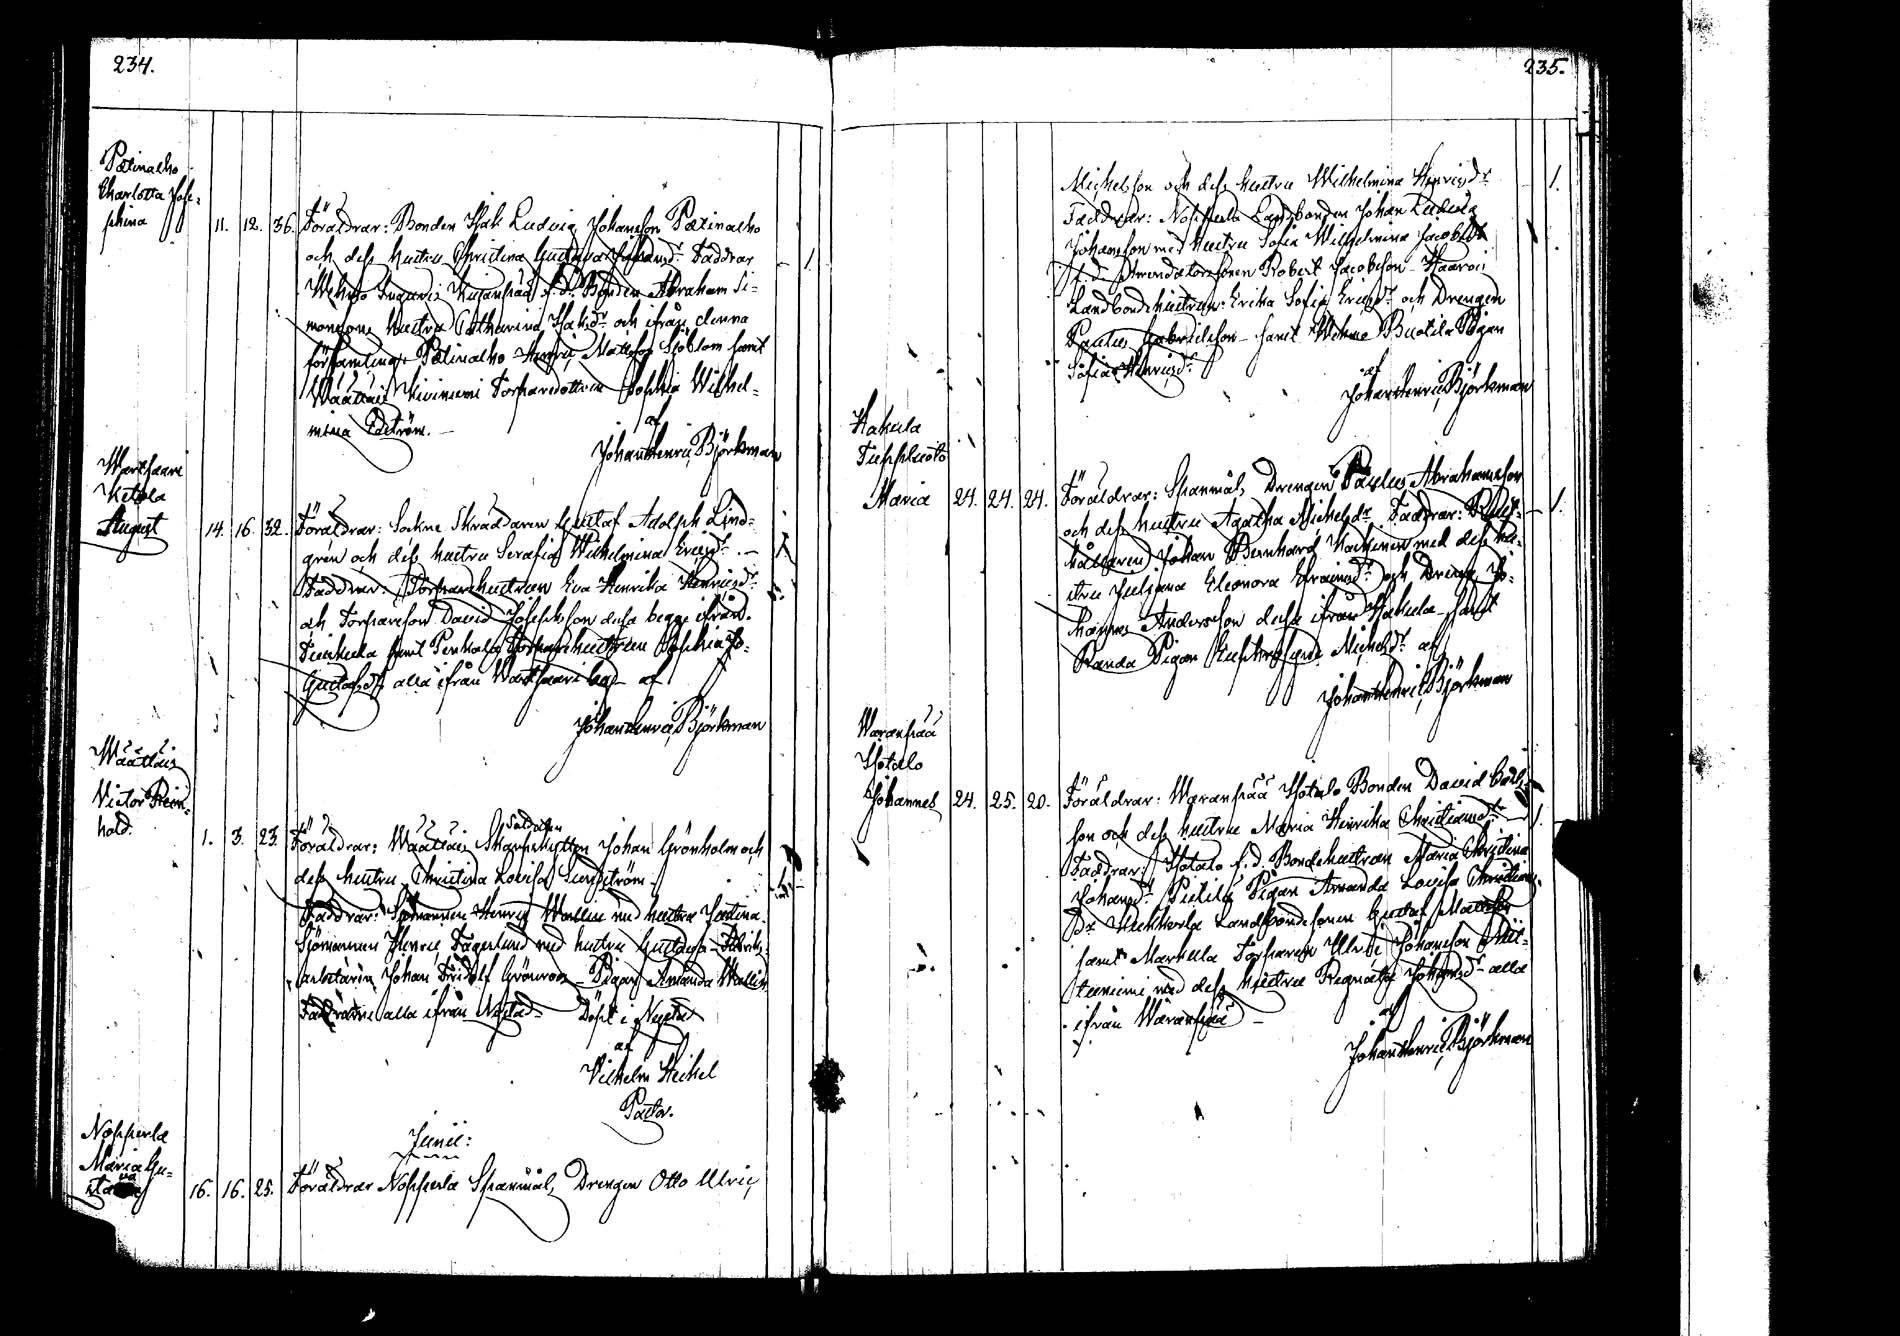 234.
Pätinalho
Charlotta Jose-
phina
11. 12. 36. Föräldrar: Bonden Isak Ludvig Johansson Pätinalho
och dess hustru Christina Gustava Faddrar
Bonden Abraham Si-
monsons hustru Catharina Isaksdr och ifrån denna
församling: Pätinalho Henric Mattsson Sjöblom samt
Wäätäis Kiviniemi Torparedottren Sophia Wilhel-
mina Edström.
af
Johan Henric Björkman
Wartsaari
Ketola
August
14. 16. 32. Föräldrar: Sockne Skräddaren Gustaf Adolph Lind-
grén och dess hustru Serafia Wilhelmina Ericsdr.
Faddrar: Torparehustrun Eva Henrika Henricsdr
och Torpareson David Josephsson dessa begge ifrån
samt Penkala Torparehustrun Sophia Jo-
Gustafsdr, alla ifrån Wartsaari by af
Johan Henric Björkman
Wäätäis
Victor Rein-
hold.
1. 3. 23. Föräldrar: Wäätäis Soldaten Johan Grönholm och
dess hustru Christina Lovisa Sundström.
Faddrar: Sjömannen Henric Wallin med hustru Justina.
Sjömannen Henric Fagerlund med hustru Gustava Fabriks-
arbetaren Johan Fridolf Grönroos Pigan Amanda Wallin
Faddrarne alla ifrån Nystad. Döpt i Nystad
af
Vilhelm Heikel
Pastor.
Junii:
Nopperla
Maria Gu-
stava
16. 16. 25. Föräldrar Nopperla Spanmåls Drengen Otto Ulric
235.
Michelsson och dess hustru Wilhelmina Henricsdr 1.
Faddrar: Nopperla Landbonden Johan Ludvig
Johansson med hustru Sofia Wilhelmina Jacobsdr
f.d. Arrendatorssonen Robert Jacobsson Haaroi
Landbondehustrun Erika Sofia Ericsdr och Drengen
Paulus Gabrielsson samt Wehmo Puotila Pigan
Sofia Henricsdr.
af
Johan Henric Björkman
Hakula
Maria
24. 24. 24. Föräldrar: Spanmåls Drengen Paulus Abrahamsson
och dess hustru Agatha Michelsdr Faddrar: Rust- 1.
hållaren Johan Bernhard med dess hu-
stru Juliana Eleonora Efraimsdr och Dreng Jo-
hannes Andersson dessa ifrån Hakula samt
Randa Pigan Michelsdr af
Johan Henric Björkman
Waranpää
Isotalo
Johannes
24. 25. 20. Föräldrar: Waranpää Isotalo Bonden David Carls-
son och dess hustru Maria Henrika Christiansdr 1.
Faddrar: Isotalo f.d. Bondehustrun Maria Christina
Johansdr Pietilä Pigan Amanda Lovisa Christians-
dr Landbondesonen Gustaf Mattsson
samt Markula Torparen Ulric Johansson
med dess hustru Regnata Johansdr alla
ifrån Waranpää
af
Johan Henric Björkman